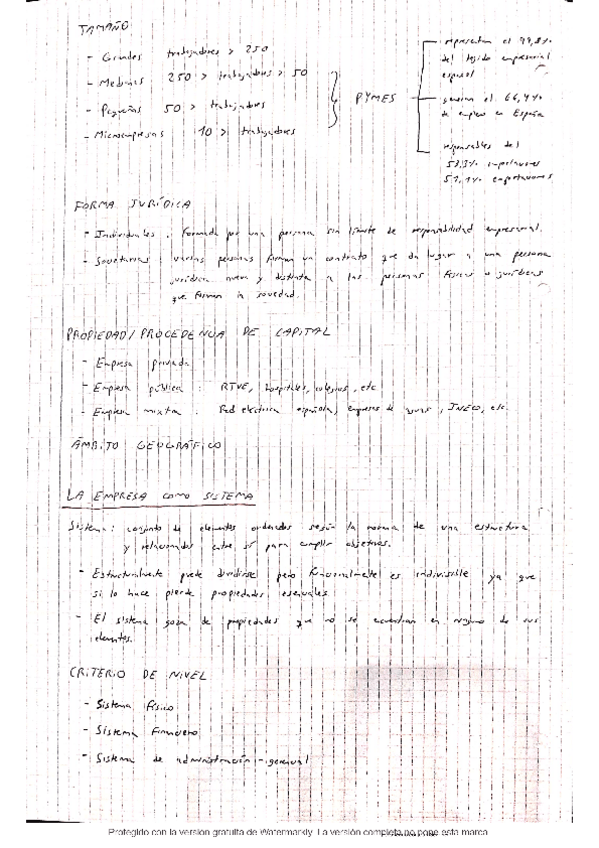 TAMAÑO
- Grandes trabajadores > 250
- Medianas 250 > trabajadores > 50
- Pequeñas 50 > trabajadores
- Microempresas 10 > trabajadores
PYMES
representan el 99,8% del tejido empresarial español
generan el 66,4% de empleo en España
responsables del
53,3% importaciones
51,1% exportaciones
FORMA JURÍDICA
- Individuales : Formada por una persona sin límite de responsabilidad empresarial.
- Societarias : varias personas firman un contrato que da lugar a una persona
jurídica nueva y distinta a las personas físicas o jurídicas
que forman la sociedad.
PROPIEDAD/PROCEDENCIA DE CAPITAL
- Empresa privada
- Empresa pública : RTVE, hospitales, colegios, etc
- Empresa mixta : Red eléctrica española, empresas de aguas, INECO, etc.
ÁMBITO GEOGRÁFICO
LA EMPRESA COMO SISTEMA
Sistema: conjunto de elementos ordenados según la norma de una estructura
y relacionados entre sí para cumplir objetivos.
- Estructuralmente puede dividirse pero funcionalmente es indivisible ya que
si lo hace pierde propiedades esenciales
- El sistema goza de propiedades que no se encuentran en ninguno de sus
elementos.
CRITERIO DE NIVEL
- Sistema físico
- Sistema financiero
- Sistema de administración-gerencial
Protegido con la versión gratuita de Watermarkly. La versión completa no pone esta marca